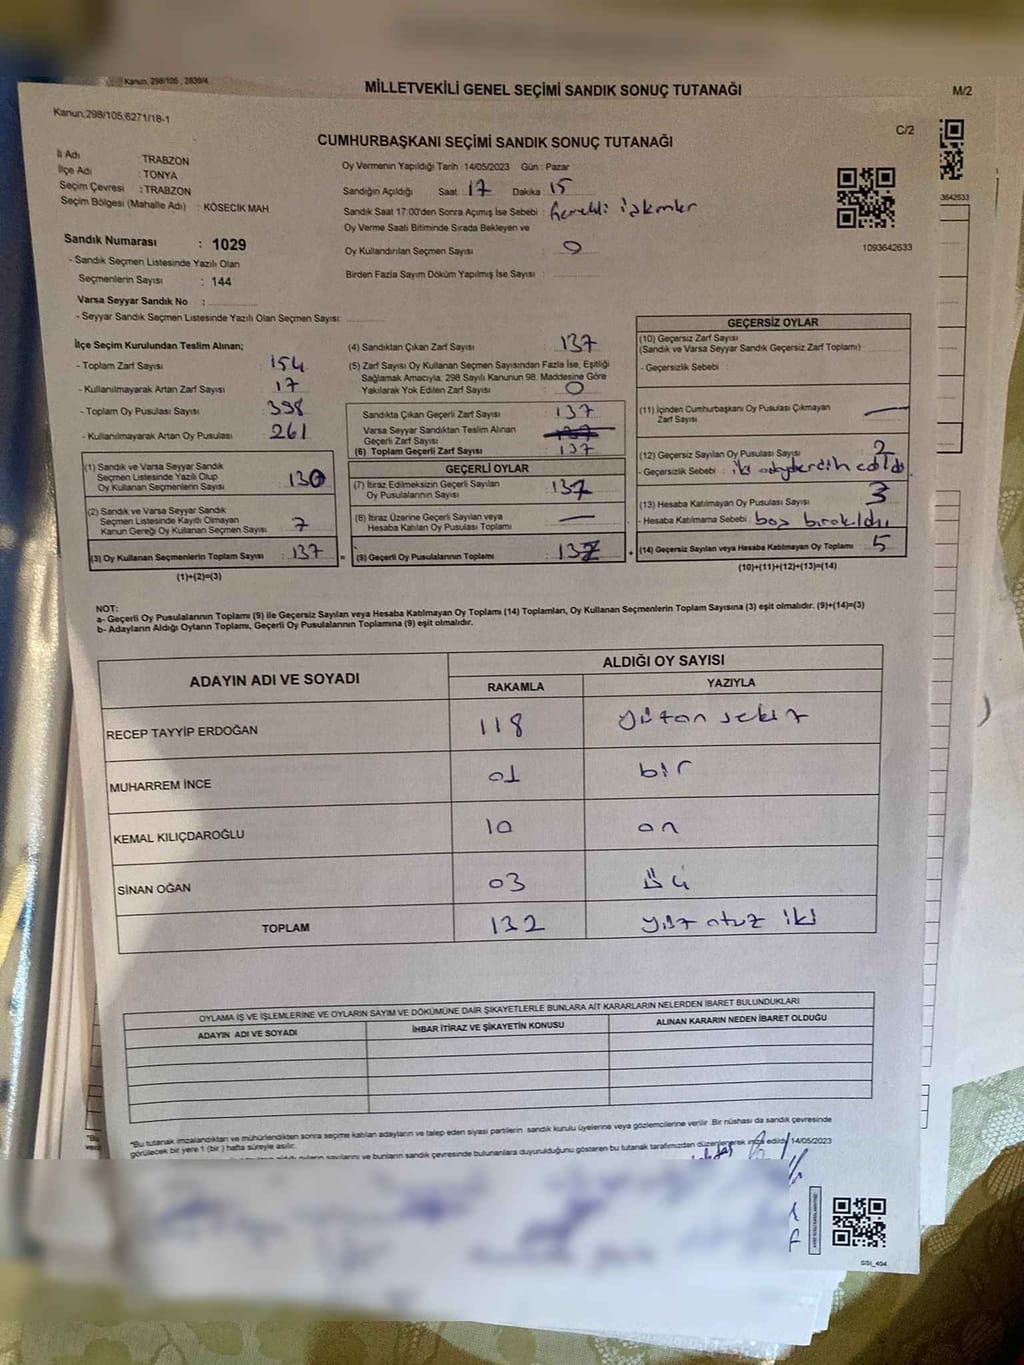 Kanun, 298/105 , 2839/4
MİLLETVEKİLİ GENEL SEÇİMİ SANDIK SONUÇ TUTANAĞI
M/2
Kanun,298/105,6271/18-1
CUMHURBAŞKANI SEÇİMİ SANDIK SONUÇ TUTANAĞI
C/2
İl Adı : TRABZON
İlçe Adı : TONYA
Seçim Çevresi : TRABZON
Seçim Bölgesi (Mahalle Adı) : KÖSECİK MAH
Sandık Numarası : 1029
- Sandık Seçmen Listesinde Yazılı Olan
Seçmenlerin Sayısı : 144
Varsa Seyyar Sandık No :
- Seyyar Sandık Seçmen Listesinde Yazılı Olan Seçmen Sayısı:
Oy Vermenin Yapıldığı Tarih : 14/05/2023 Gün : Pazar
Sandığın Açıldığı Saat 17 Dakika 15
Sandık Saat 17:00'den Sonra Açımış İse Sebebi :
Oy Verme Saati Bitiminde Sırada Bekleyen ve
Oy Kullandırılan Seçmen Sayısı : 0
Birden Fazla Sayım Döküm Yapılmış İse Sayısı :
1093642633
3642633
İlçe Seçim Kurulundan Teslim Alınan;
- Toplam Zarf Sayısı : 154
- Kullanılmayarak Artan Zarf Sayısı : 17
- Toplam Oy Pusulası Sayısı : 398
- Kullanılmayarak Artan Oy Pusulası : 261
(1) Sandık ve Varsa Seyyar Sandık
Seçmen Listesinde Yazılı Olup
Oy Kullanan Seçmenlerin Sayısı : 130
(2) Sandık ve Varsa Seyyar Sandık
Seçmen Listesinde Kayıtlı Olmayan
Kanun Gereği Oy Kullanan Seçmen Sayısı : 7
(3) Oy Kullanan Seçmenlerin Toplam Sayısı : 137
(1)+(2)=(3)
(4) Sandıktan Çıkan Zarf Sayısı : 137
(5) Zarf Sayısı Oy Kullanan Seçmen Sayısından Fazla İse, Eşitliği
Sağlamak Amacıyla, 298 Sayılı Kanunun 98. Maddesine Göre
Yakılarak Yok Edilen Zarf Sayısı : 0
Sandıkta Çıkan Geçerli Zarf Sayısı : 137
Varsa Seyyar Sandıktan Teslim Alınan
Geçerli Zarf Sayısı :
(6) Toplam Geçerli Zarf Sayısı : 137
GEÇERLİ OYLAR
(7) İtiraz Edilmeksizin Geçerli Sayılan
Oy Pusulalarının Sayısı : 132
(8) İtiraz Üzerine Geçerli Sayılan veya
Hesaba Katılan Oy Pusulası Toplamı : —
= (9) Geçerli Oy Pusulalarının Toplamı : 132 +
GEÇERSİZ OYLAR
(10) Geçersiz Zarf Sayısı
(Sandık ve Varsa Seyyar Sandık Geçersiz Zarf Toplamı) :
- Geçersizlik Sebebi :
(11) İçinden Cumhurbaşkanı Oy Pusulası Çıkmayan
Zarf Sayısı : —
(12) Geçersiz Sayılan Oy Pusulası Sayısı : 2
- Geçersizlik Sebebi : iki adayı tercih edildi
(13) Hesaba Katılmayan Oy Pusulası Sayısı : 3
- Hesaba Katılmama Sebebi : boş bırakıldı
(14) Geçersiz Sayılan veya Hesaba Katılmayan Oy Toplamı : 5
(10)+(11)+(12)+(13)=(14)
NOT:
a- Geçerli Oy Pusulalarının Toplamı (9) ile Geçersiz Sayılan veya Hesaba Katılmayan Oy Toplamı (14) Toplamları, Oy Kullanan Seçmenlerin Toplam Sayısına (3) eşit olmalıdır. (9)+(14)=(3)
b- Adayların Aldığı Oyların Toplamı, Geçerli Oy Pusulalarının Toplamına (9) eşit olmalıdır.
ADAYIN ADI VE SOYADI
ALDIĞI OY SAYISI
RAKAMLA YAZIYLA
RECEP TAYYİP ERDOĞAN 118 yüzon sekiz
MUHARREM İNCE 01 bir
KEMAL KILIÇDAROĞLU 10 on
SİNAN OĞAN 03 üç
TOPLAM 132 yüz otuz iki
OYLAMA İŞ VE İŞLEMLERİNE VE OYLARIN SAYIM VE DÖKÜMÜNE DAİR ŞİKAYETLERLE BUNLARA AİT KARARLARIN NELERDEN İBARET BULUNDUKLARI
ADAYIN ADI VE SOYADI İHBAR İTİRAZ VE ŞİKAYETİN KONUSU ALINAN KARARIN NEDEN İBARET OLDUĞU
"Bu tutanak imzalandıktan ve mühürlendikten sonra seçime katılan adayların ve talep eden siyasi partilerin sandık kurulu üyelerine veya gözlemcilerine verilir. Bir nüshası da sandık çevresinde
görülecek bir yere 1 (bir) hafta süreyle asılır.
oyların sayılarını ve bunların sandık çevresinde bulunanlara duyurulduğunu gösteren bu tutanak tarafımızdan düzenlenerek imza edildi. 14/05/2023
SSI_404